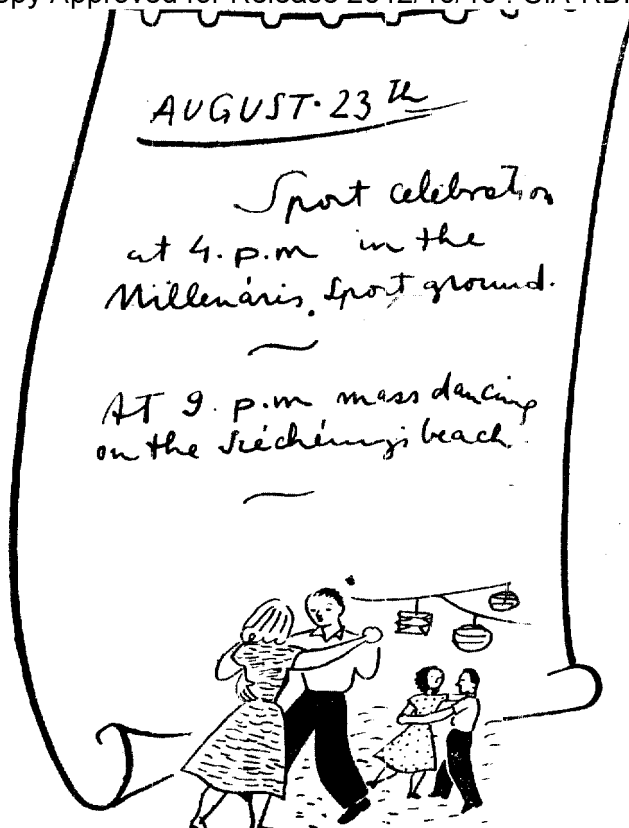 Copy Approved for Release 2012/10/10 : CIA-RDP
AUGUST. 23th
Sport celebration
at 4. p.m in the
Millenáris. Sport ground.
AT 9. p.m mass dancing
on the beach.